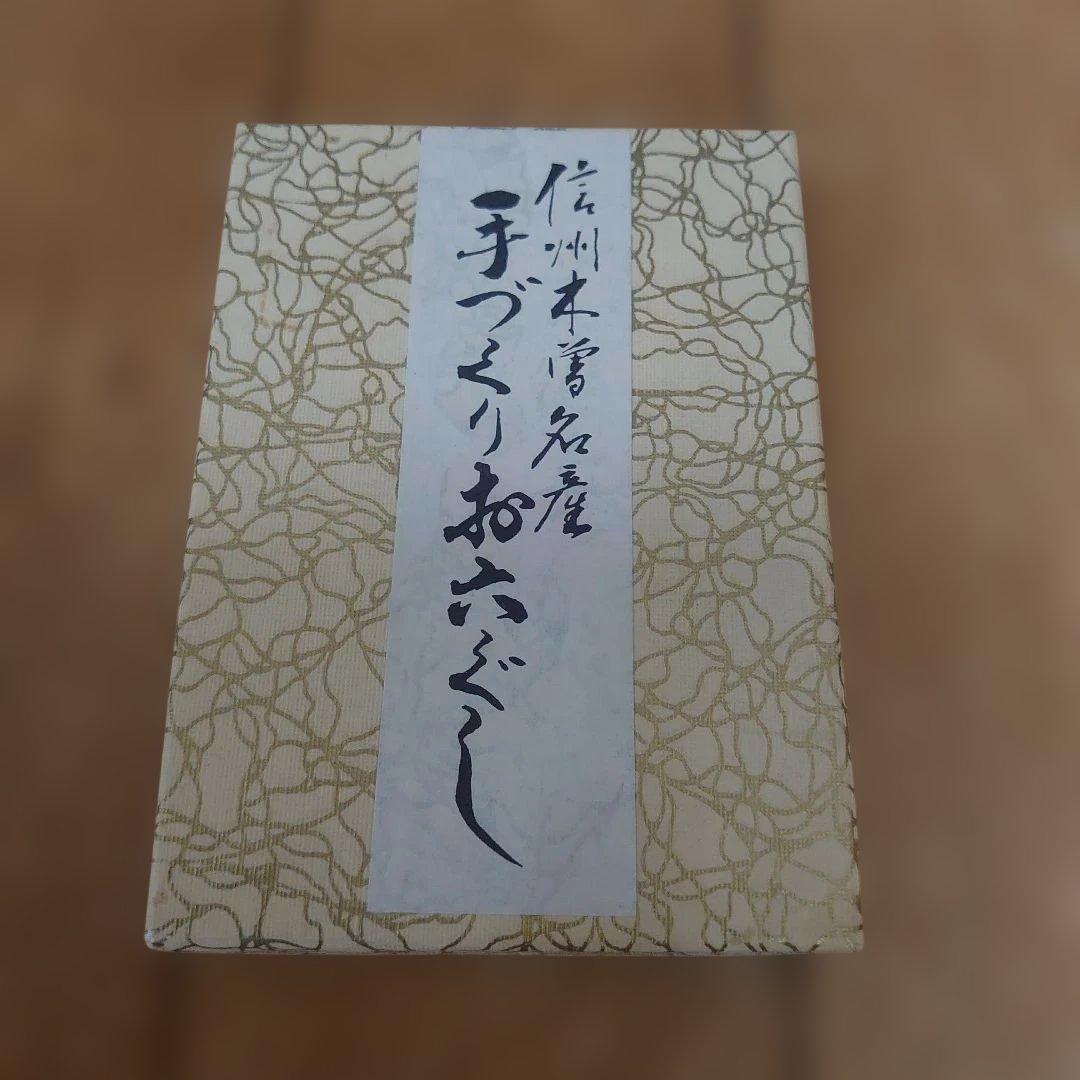 信州木曽名産
手づくりお六ぐし